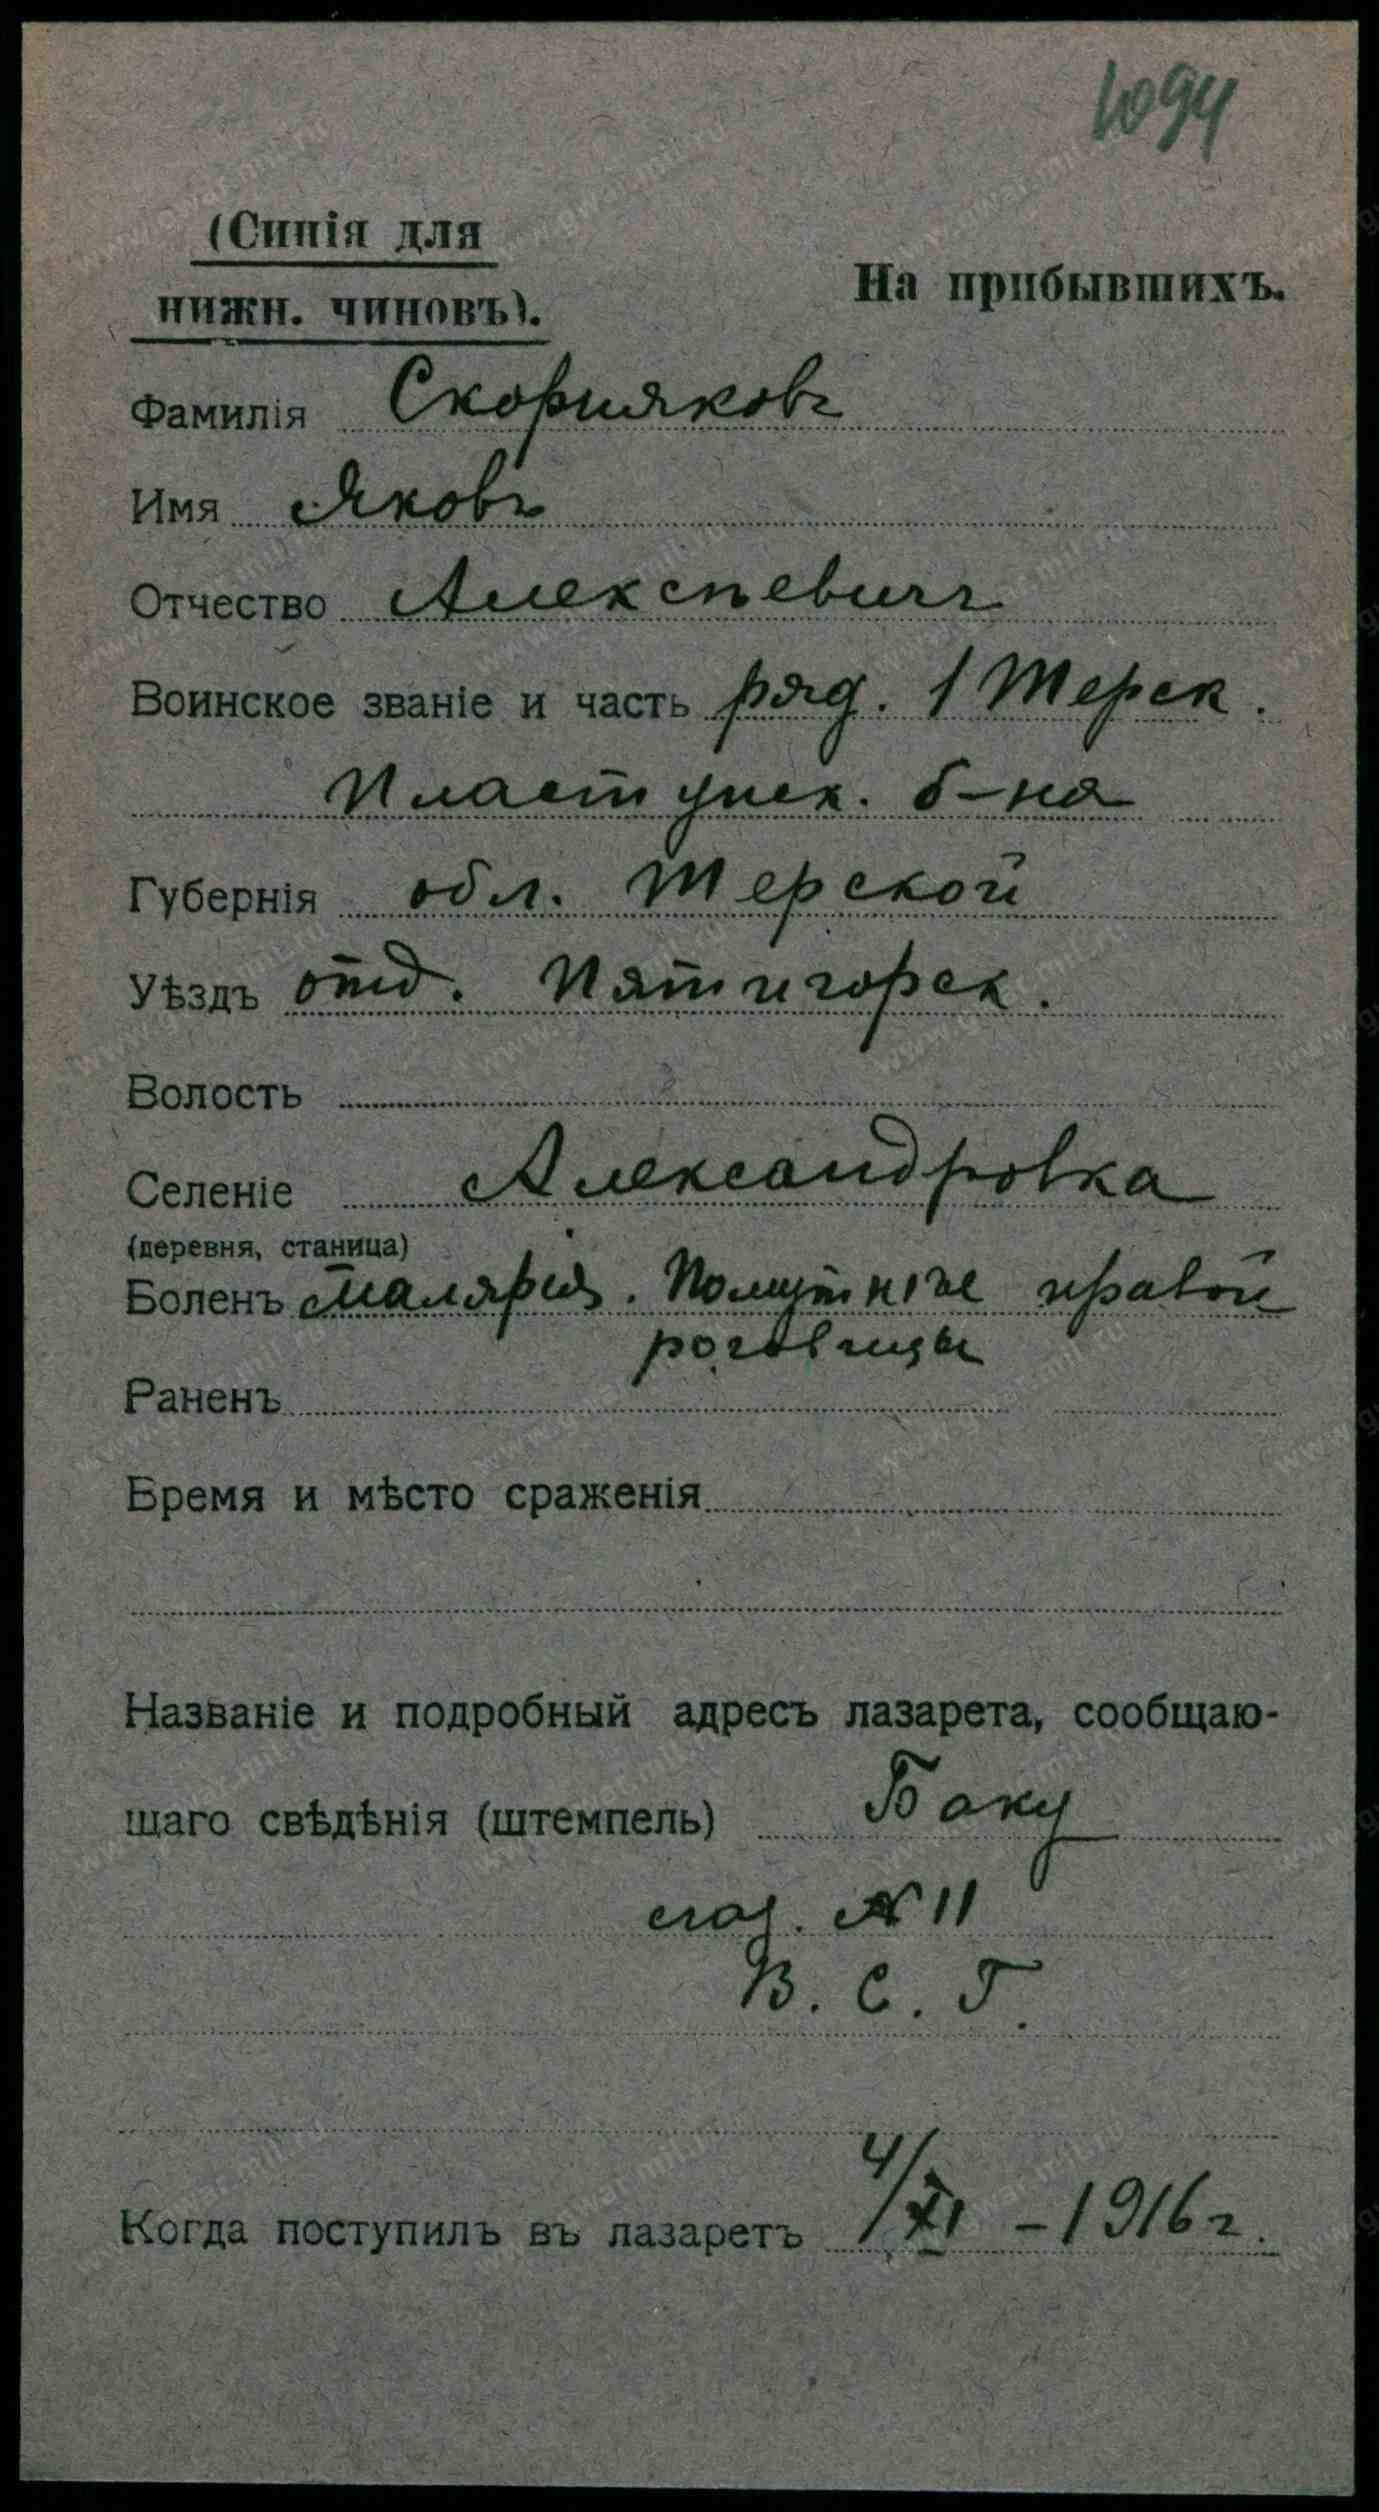 1094
(Синія для
нижн. чиновъ).
На прибывшихъ.
Фамилія Скорняковъ
Имя Яковъ
Отчество Алексѣевичъ
Воинское званіе и часть ряд. 1 Терск.
Пластунск. б-на
Губернія обл. Терской
Уѣздъ отд. Пятигорск.
Волость
Селеніе Александровка
(деревня, станица)
Боленъ Малярія. Помутнѣніе правой
роговицы
Раненъ
Время и мѣсто сраженія
Названіе и подробный адресъ лазарета, сообщаю-
щаго свѣдѣнія (штемпель) Баку
№ 11
В. С. Г.
Когда поступилъ въ лазаретъ 4/XI - 1916 г.
www.gwar.mil.ru